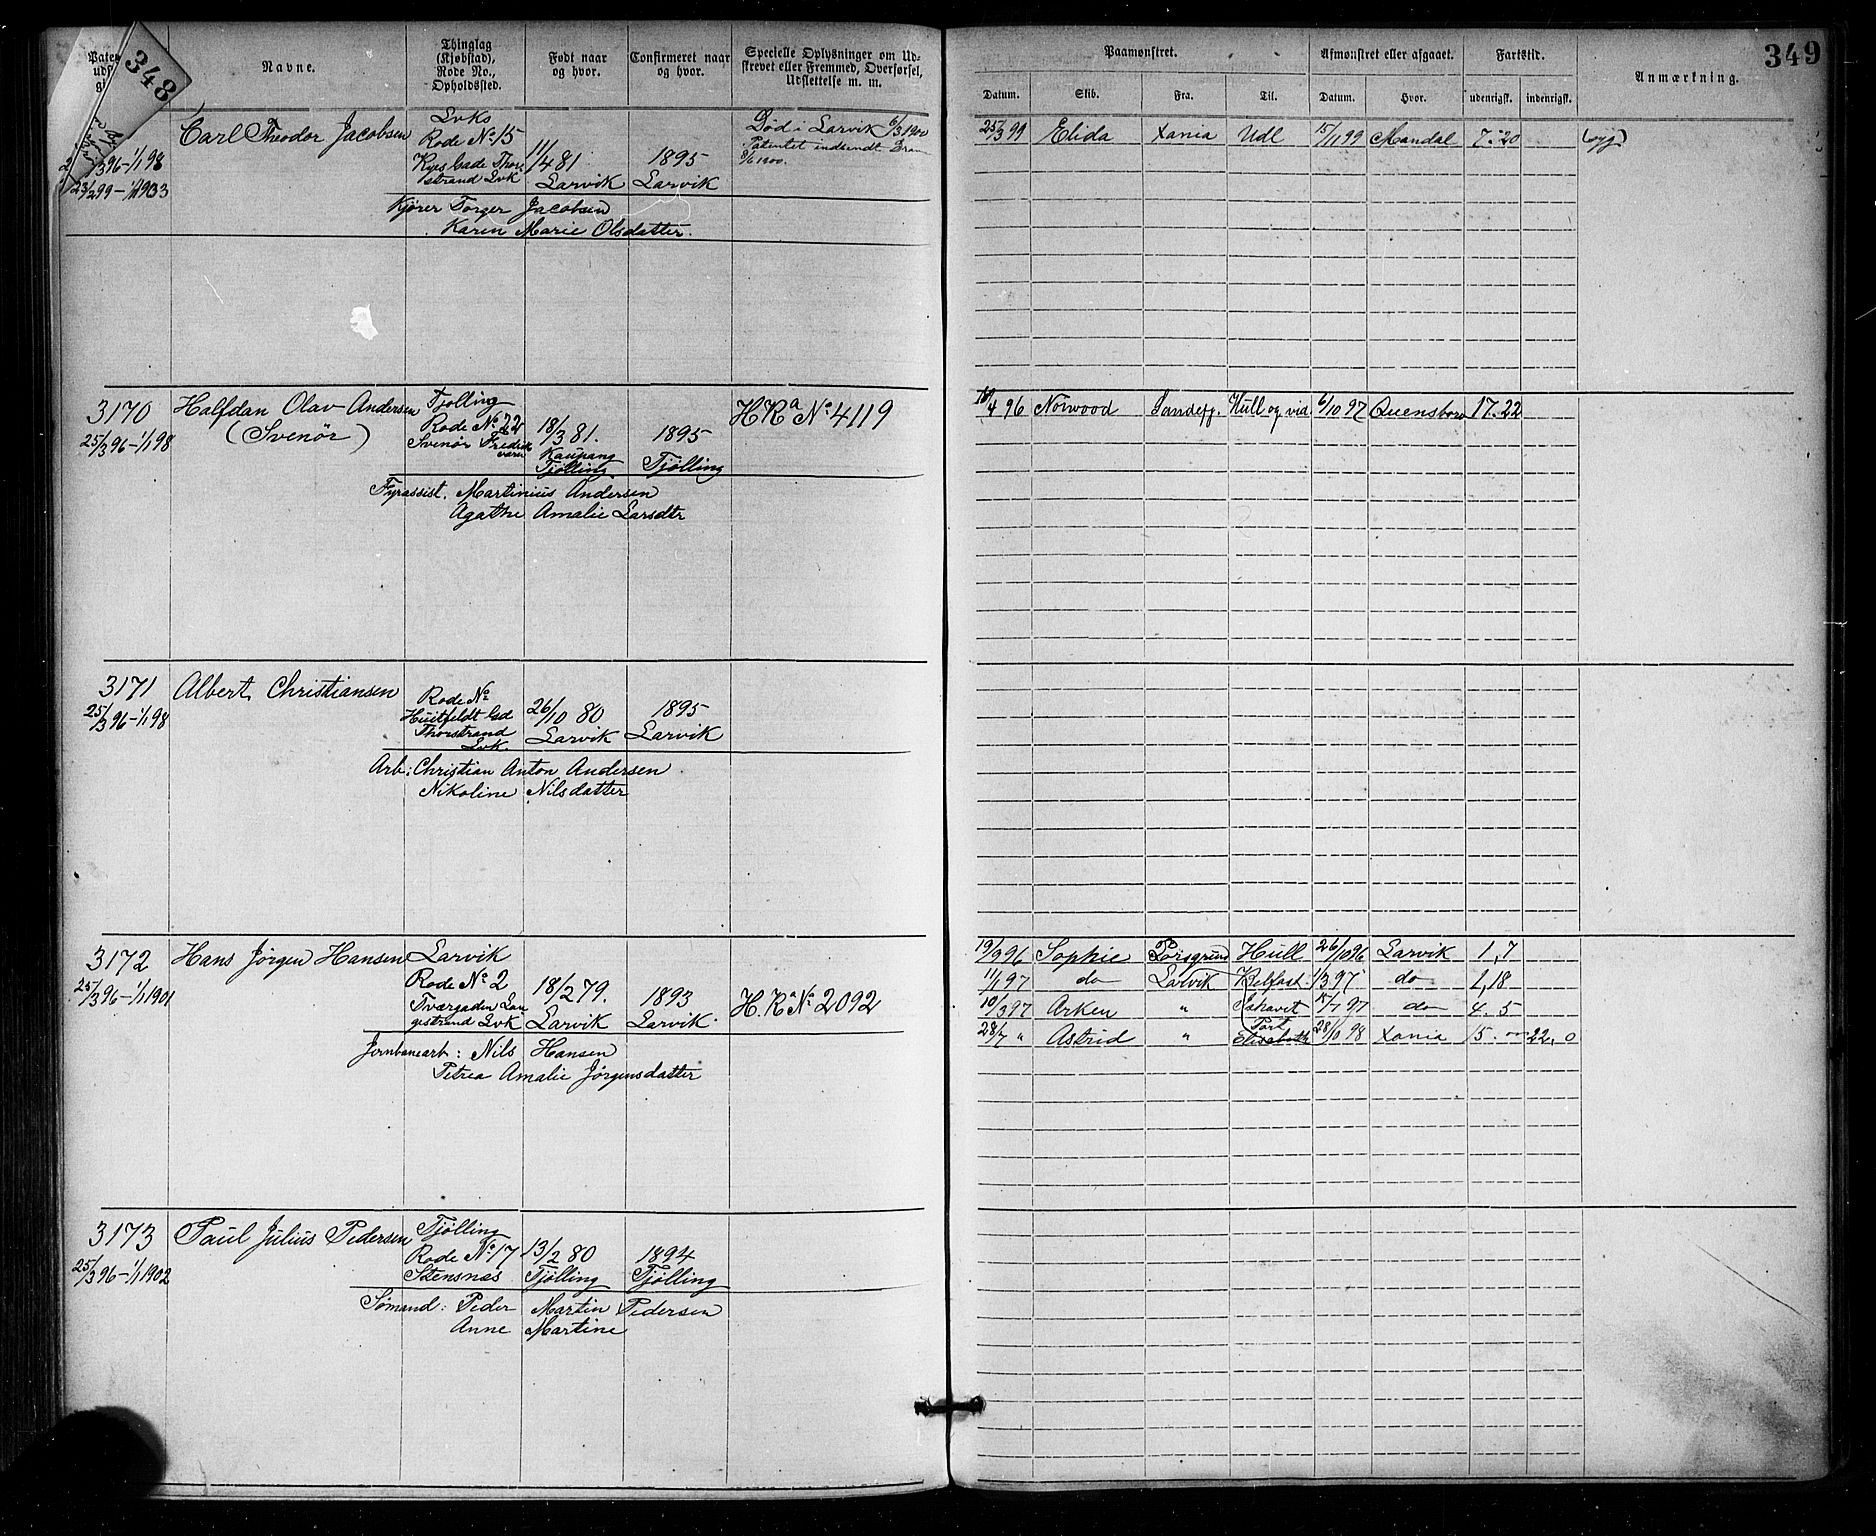 348
349
Navne.
Thinglag
(Kjøbstad),
Rode No.,
Opholdssted.
Født naar
og hvor.
Confirmeret naar
og hvor.
Specielle Oplysninger om Ud-
skrevet eller Fremmed, Overførsel,
Udslettelse m. m.
Paamønstret.
Afmønstret eller afgaaet.
Fartstid.
Anmærkning.
Datum. Skib. Fra. Til. Datum. Hvor. udenrigsk. indenrigsk.
Carl Theodor Jacobsen
/3 96-1/1 98
23/2 99-1/1 1933
Lvks
Rode No 15
strand Lvk
11/4 81
Larvik
1895
Larvik
Død i Larvik 6/3 1900
Patentet indsendt
Kjører Torger Jacobsen
Karen Marie Olsdatter.
25/3 99 Elida Xania Udl 15/11 99 Mandal 7-20 (syg)
3170
25/3 96-1/1 98
Halfdan Olav Andersen
(Svenør)
Tjølling
Rode No 22
Svenør Fredriks
værn
18/3 81.
Kaupang
Tjølling
1895
Tjølling
H Ra No 4119
Fyrassist. Martinius Andersen
Agathe Amalie Larsdtr
/4 96 Norwood Sandefj. Hull og vid. 6/10 97 Queensboro 17-22
3171
25/3 96-1/1 98
Albert Christiansen
Rode No
Huitfeldt Gad
Thorstrand
Lvk
26/10 80
Larvik
1895
Larvik
Arb: Christian Anton Andersen
Nikoline Nilsdatter
3172
25/3 96-1/1 1901
Hans Jørgen Hansen
Larvik
Rode No 2
Tværgaden Lan
gestrand Lvk
18/2 79.
Larvik
1893
Larvik
H. Ra No 2092
Jernbanearb: Nils Hansen
Petrea Amalie Jørgensdatter
19/9 96 Sophie Porsgrund Hull 26/10 96 Larvik 1,7
11/1 97 do Larvik Belfast 1/3 97 do 1,18
10/3 97 Arken " 15/7 97 do 4. 5
28/7 " Astrid " Port Elisabeth 28/10 98 Xania 15. 22. 0
3173
25/3 96-1/1 1902
Paul Julius Pedersen
Tjølling
Rode No 17
Stensnæs
13/2 80
Tjølling
1894
Tjølling
Sømand: Peder Martin Pedersen
Anne Martine